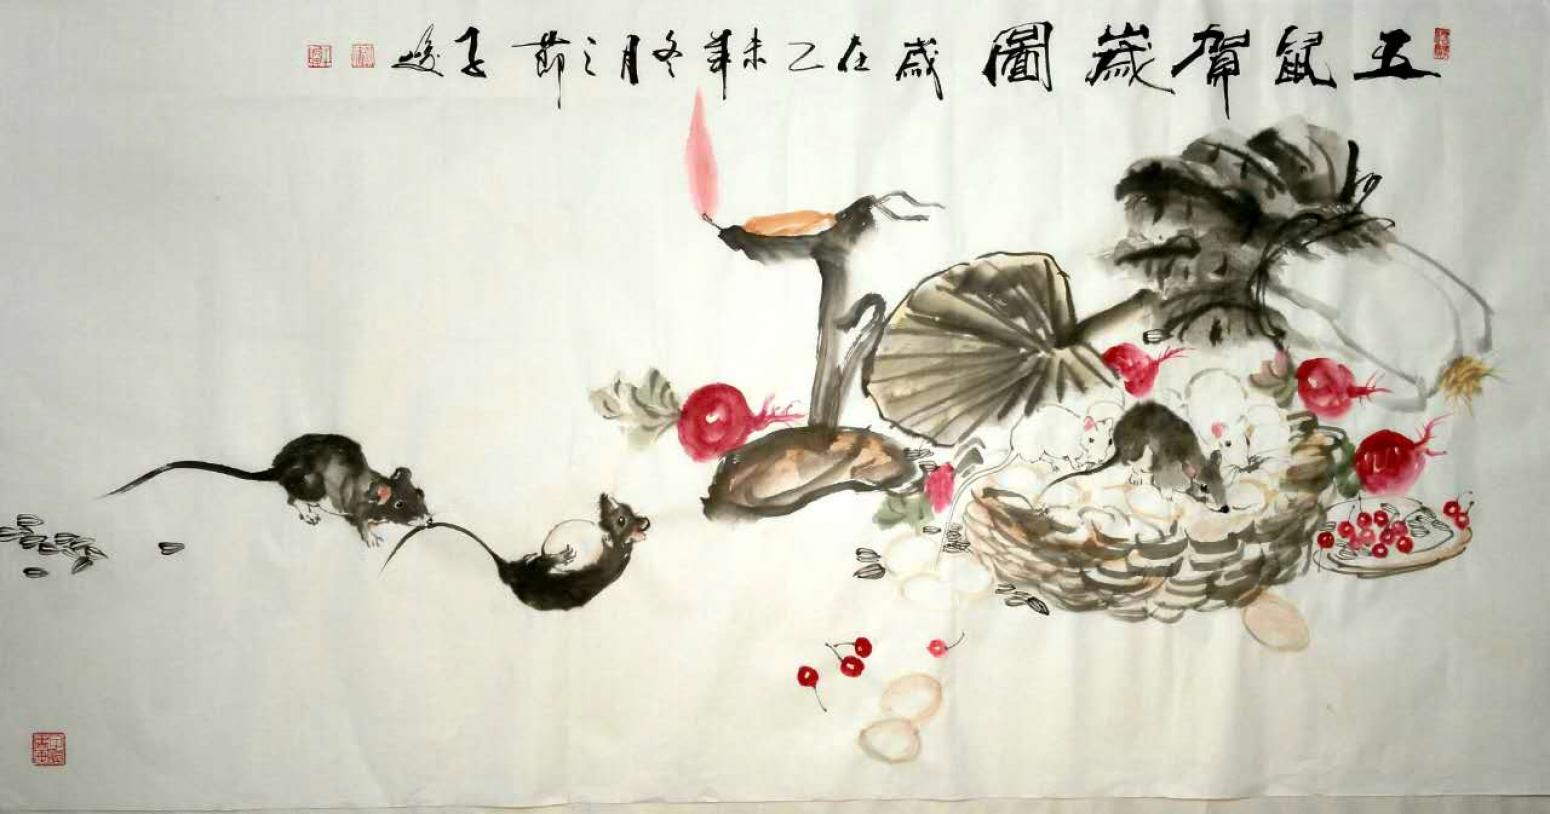 五鼠賀歲圖 歲在乙未年冬月之節 子峻